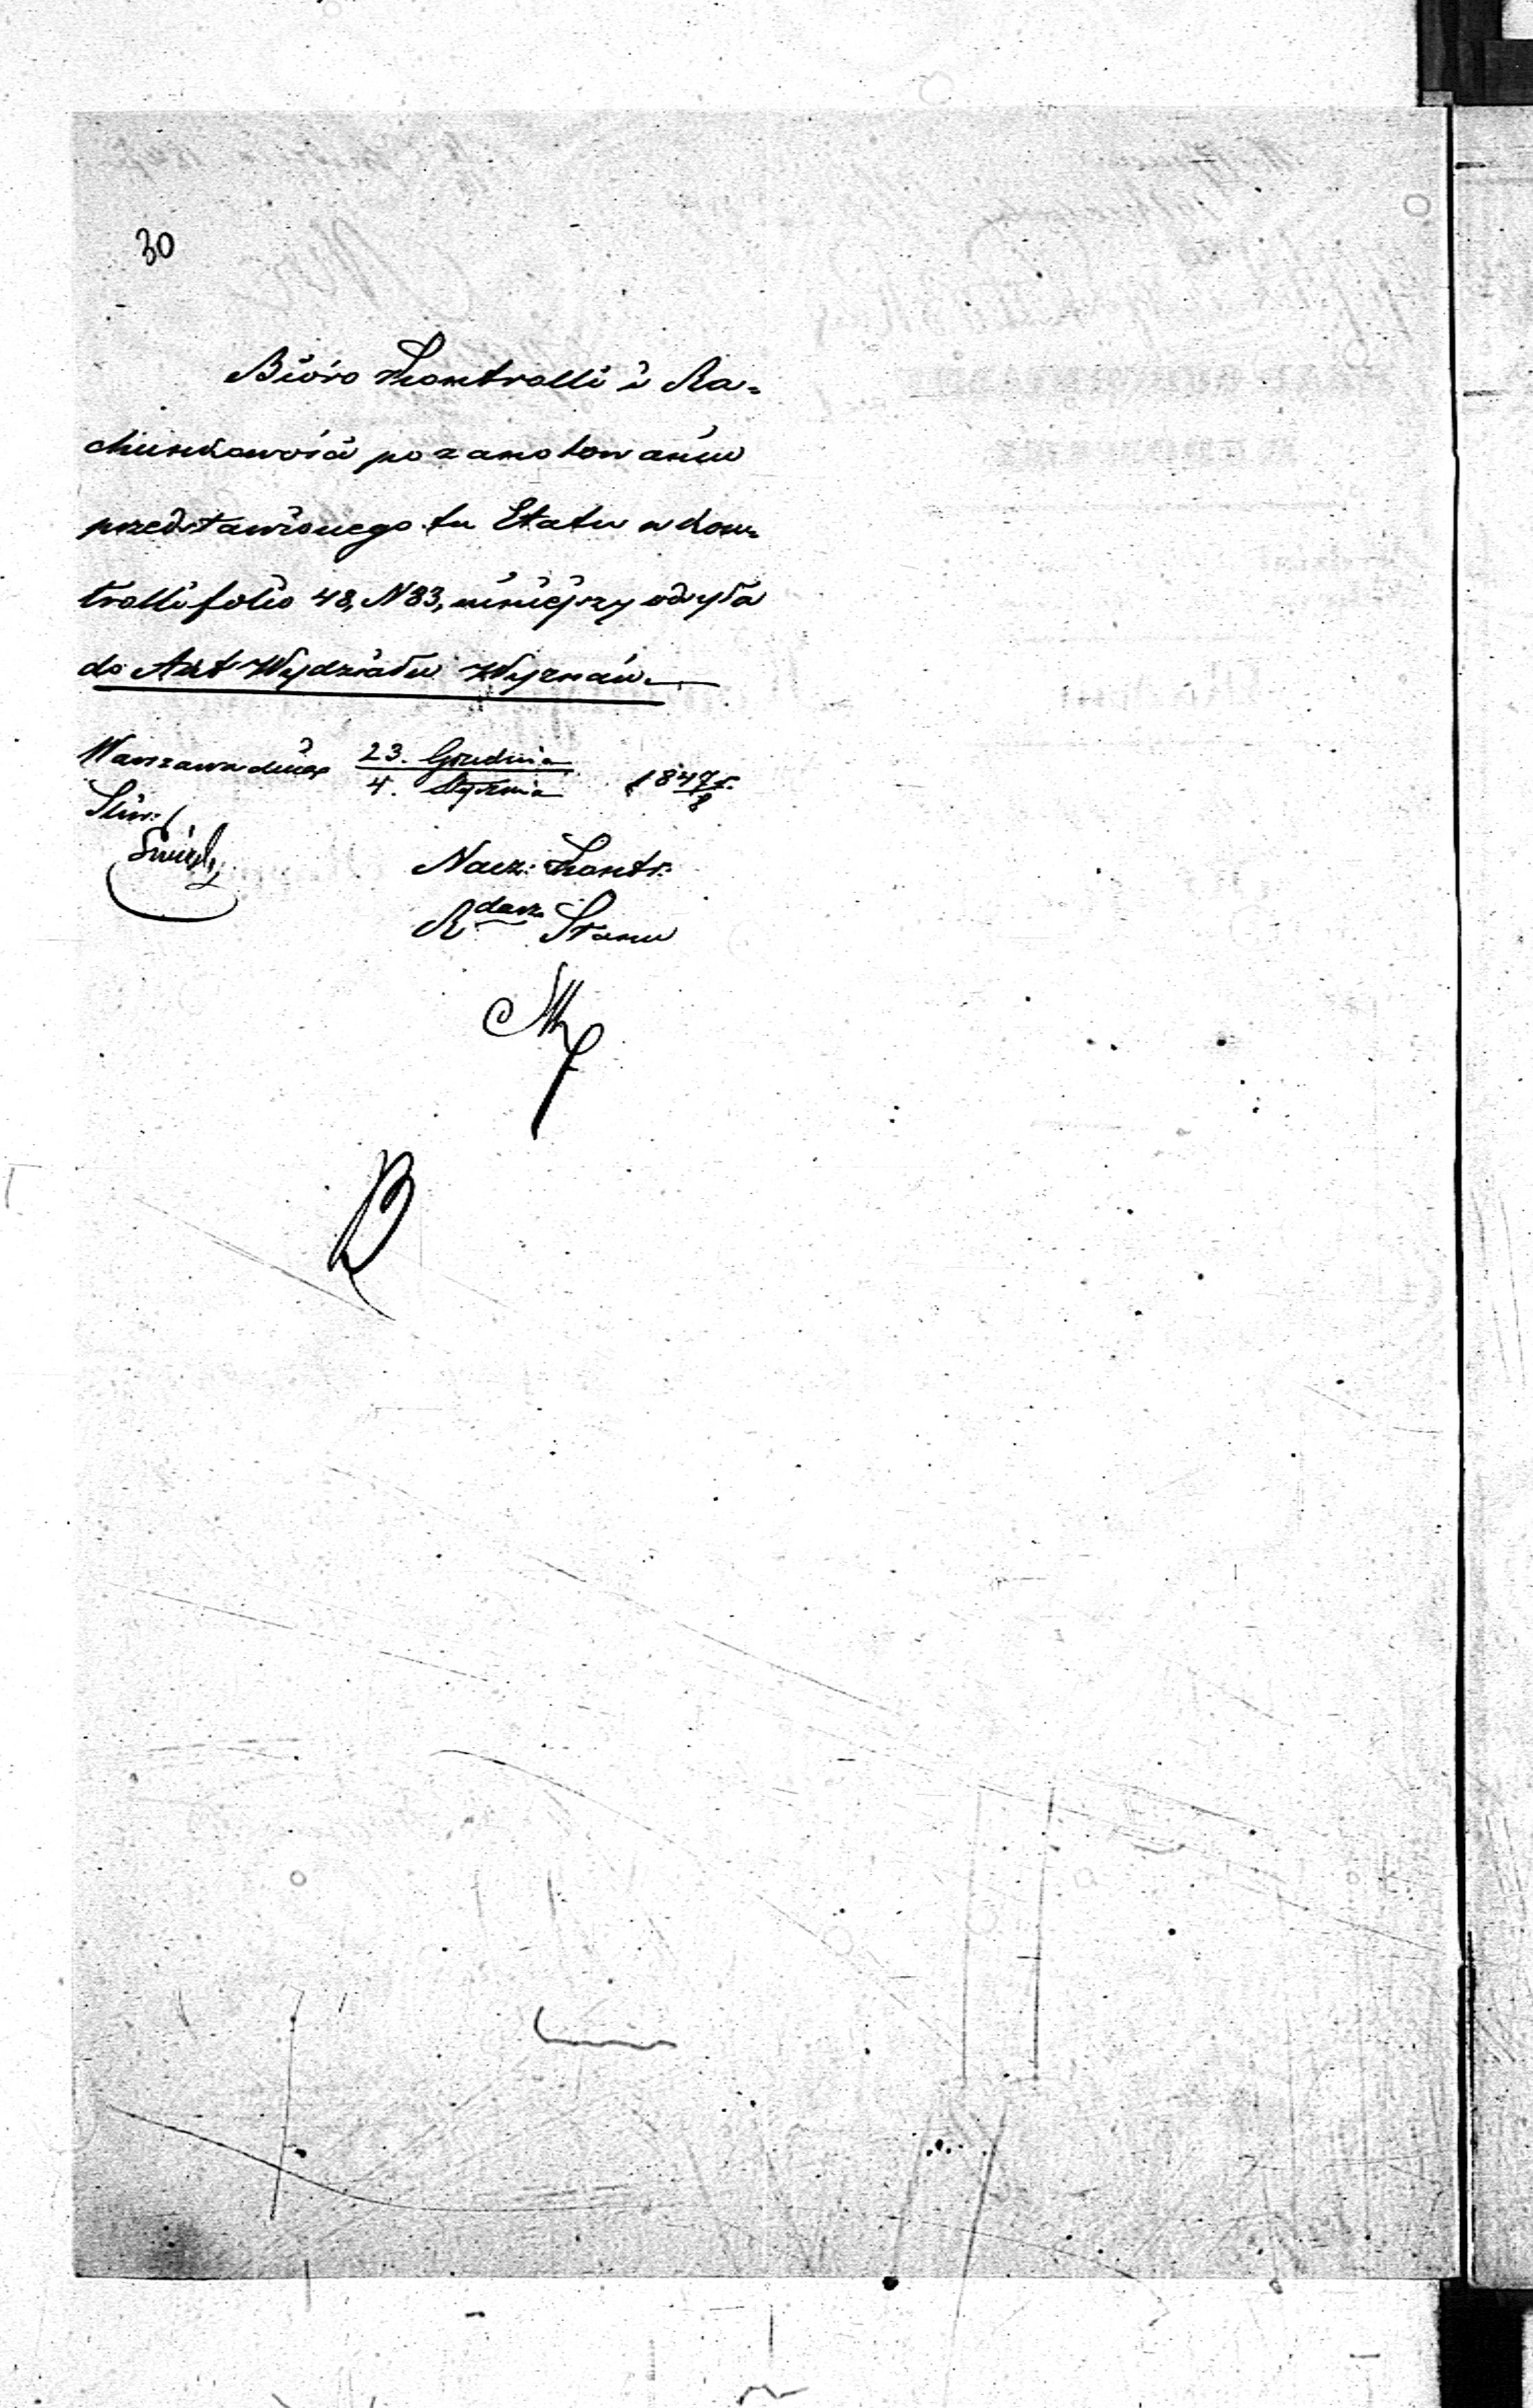 30
Bióro Kontrolli i Ra=
chunkowości po zanotowaniu
przedstawionego tu Etatu w kon=
trolli folio 48, N 83, niniejszy odsyła
do Akt Wydziału Wyznań.
Warszawa dnia 23. Grudnia / 4. Stycznia 1847/8 r.
Nacz: Kontr:
Rdca Stanu